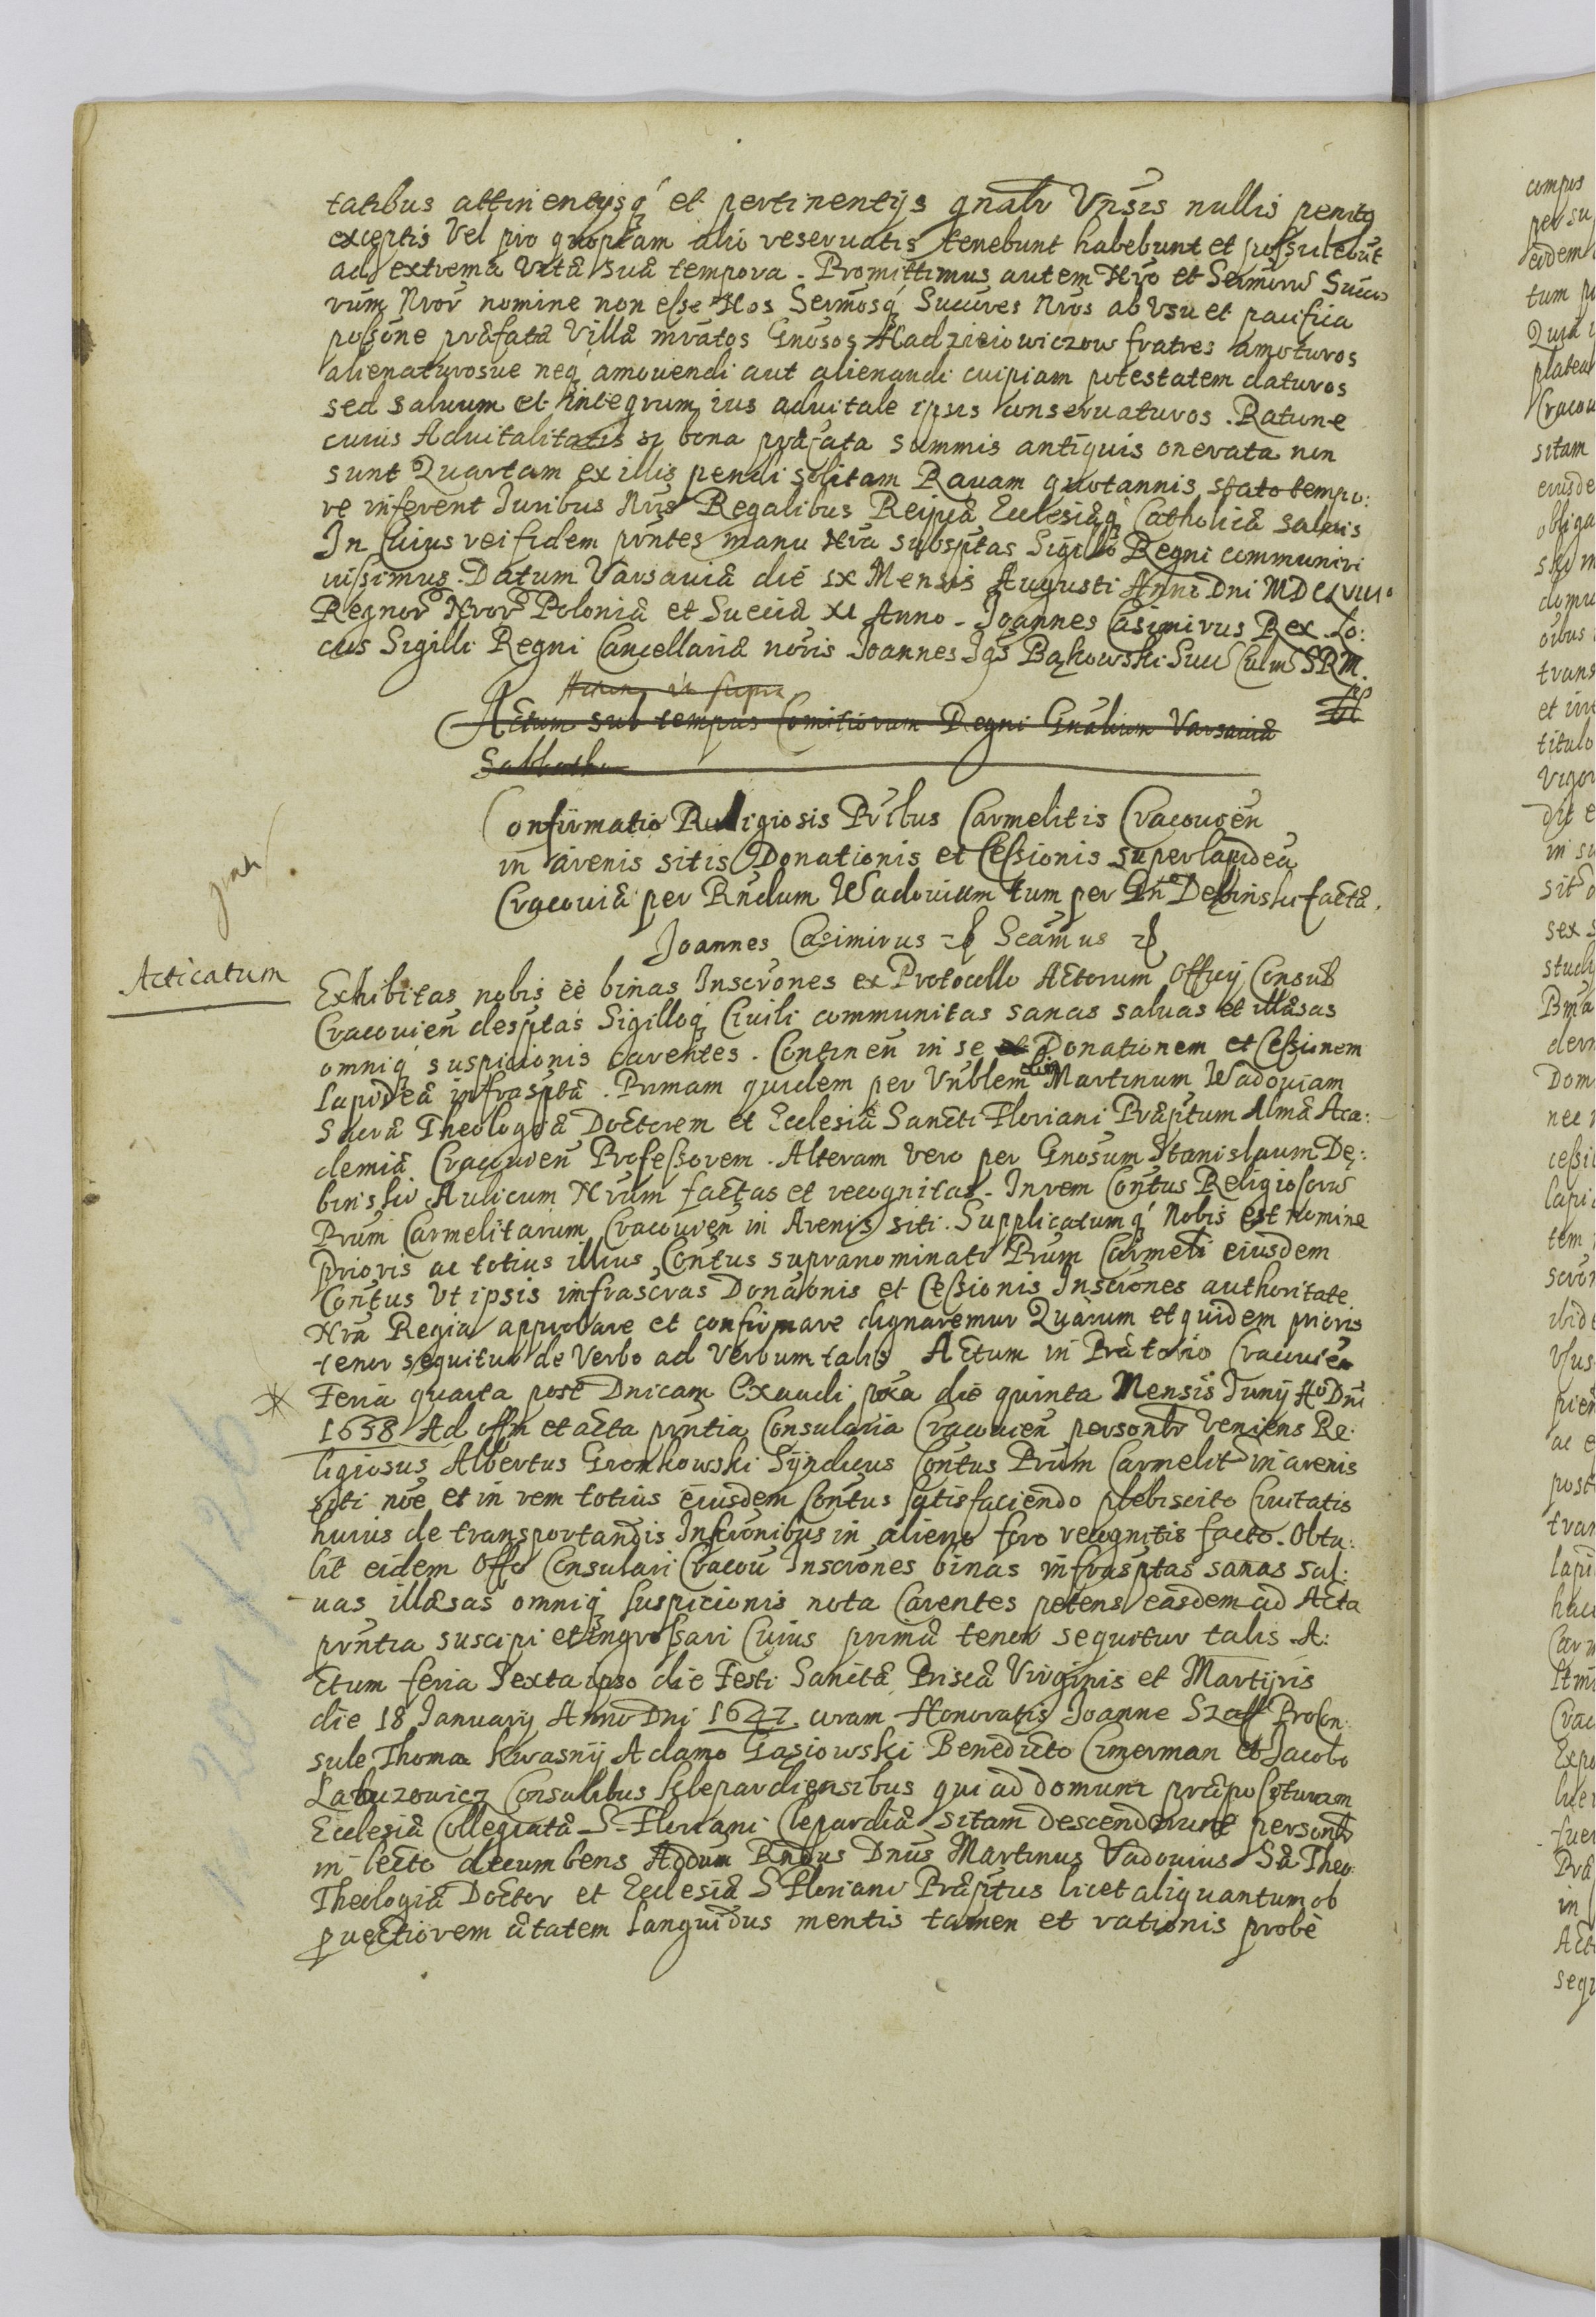 tatibus attinentijsq́ et pertinentijs gnalr Vnsis nullis penitq
exceptis Vel pro quopiam alio reseruatis tenebunt habebunt et possidebūt
ad extrema Vitæ suæ tempora. Promittimus autem Nrō et Sermorū Succo
rum Nror nomine non esse Nos Sermosq́ Succres Nros ab Vsu et pacifica
possone præfatæ Villæ mratos Gnosos Hadziciowiczow fratres amoturos
alienaturosue neq́ amouendi aut alienandi cuipiam potestatem daturos
sed saluum et integrum ius aduitale ipsis conseruaturos. Ratione
cuius Aduitalitatis si bona præfata summis antiquis onerata non
sunt Quartam ex illis pendi solitam Rauam quotannis stato tempo:
re inferent Juribus Nris Regalibus Reipcæ Ecclesiæq́ Catholicæ saluis
In Cuius rei fidem pñtes manu Nrā subsptas Sigillō Regni communiri
iussimus. Datum Varsauiæ die IX Mensis Augusti Anno Dni MDCLVIII
Regnor Nror Poloniæ et Sueciæ XI Anno. Joannes Casimirus Rex. Lo:
cus Sigilli Regni Cancellariæ noris Joannes Igs Bąkowski Succ Culm SRM.
Actum ut supra
Actum sub tempus Comitiorum Regni Gnalium Varsauiæ
Sabbatho
Confirmatio Religiosis Pribus Carmelitis Cracouień
in arenis sitis Donationis et Cessionis super lapideā
Cracouiæ per Rndum Wadouium tum per Gn Dębinski factæ.
Joannes Casimirus Scāmus
Acticatum
Exhibitas nobis eē binas Inscrones ex Protocollo Actorum Officij Consulr
Cracouień desptas Sigilloq́ Ciuili communitas sanas saluas et illæsas
omniq́ suspicionis carentes. Contineń in se Donationem et Cessionem
Lapideæ infrasptæ. Primam quidem per Vnblem olim Martinum Wadouiam
Sacræ Theologiæ Doctorem et Ecclesiæ Sancti Floriani Præptum Almæ Aca:
demiæ Cracouień Professorem. Alteram vero per Gnosum Stanislaum Dę:
binski Aulicum Nrum factas et recognitas. In rem Contus Religiosorū
Prum Carmelitarum Cracouień in Arenis siti. Supplicatumq́ Nobis est nomine
Prioris ac totius illius Contus supranominati Prum Carmeli eiusdem
Contus Vt ipsis infrascras Donaōnis et Cessionis Inscrones authoritate
Nrā Regia approbare et confirmare dignaremur Quarum et quidem prioris
tenor sequitur de Verbo ad Verbum talis Actum in Prætorio Cracouień
Feria quarta post Dnicam Exaudi pxa die quinta Mensis Junij Ao Dni
1658 Ad offm et acta pñtia Consularia Cracouień personlr Veniens Re:
ligiosus Albertus Gronkowski Syndicus Contus Prum Carmelit in arenis
siti noē et in rem totius eiusdem Contus satisfaciendo plebiscito Ciuitatis
huius de transportandis Inscronibus in alieno foro recognitis facto. Obtu:
lit eidem Offo Consulari Cracou Inscrones binas infrasptas sanas sal:
uas illæsas omniq́ suspicionis nota Carentes petens easdem ad Acta
pñtia suscipi et ingrossari Cuius primæ tenor sequitur talis. A:
ctum feria Sexta ipso die Festi Sanctæ Priscæ Virginis et Martijris
die 18 Januarij Anno Dni 1647 coram Honoratis Joanne Szaff Procon:
sule Thoma Kwasnij Adamo Gąsiowski Benedicto Cimerman et Jacobo
Labuzowicz Consulibus Clepardiensibus qui ad domum præposituram
Ecclesiæ Collegiatæ S Floriani Clepardiæ Sitam descenderunt personlr
in lecto decumbens Addum Rndus Dnus Martinus Vadouius Sæ Theo:
Theologiæ Doctor et Ecclesiæ S Floriani Præptus licet aliquantum ob
puectiorem ætatem Languidus mentis tamen et rationis probè